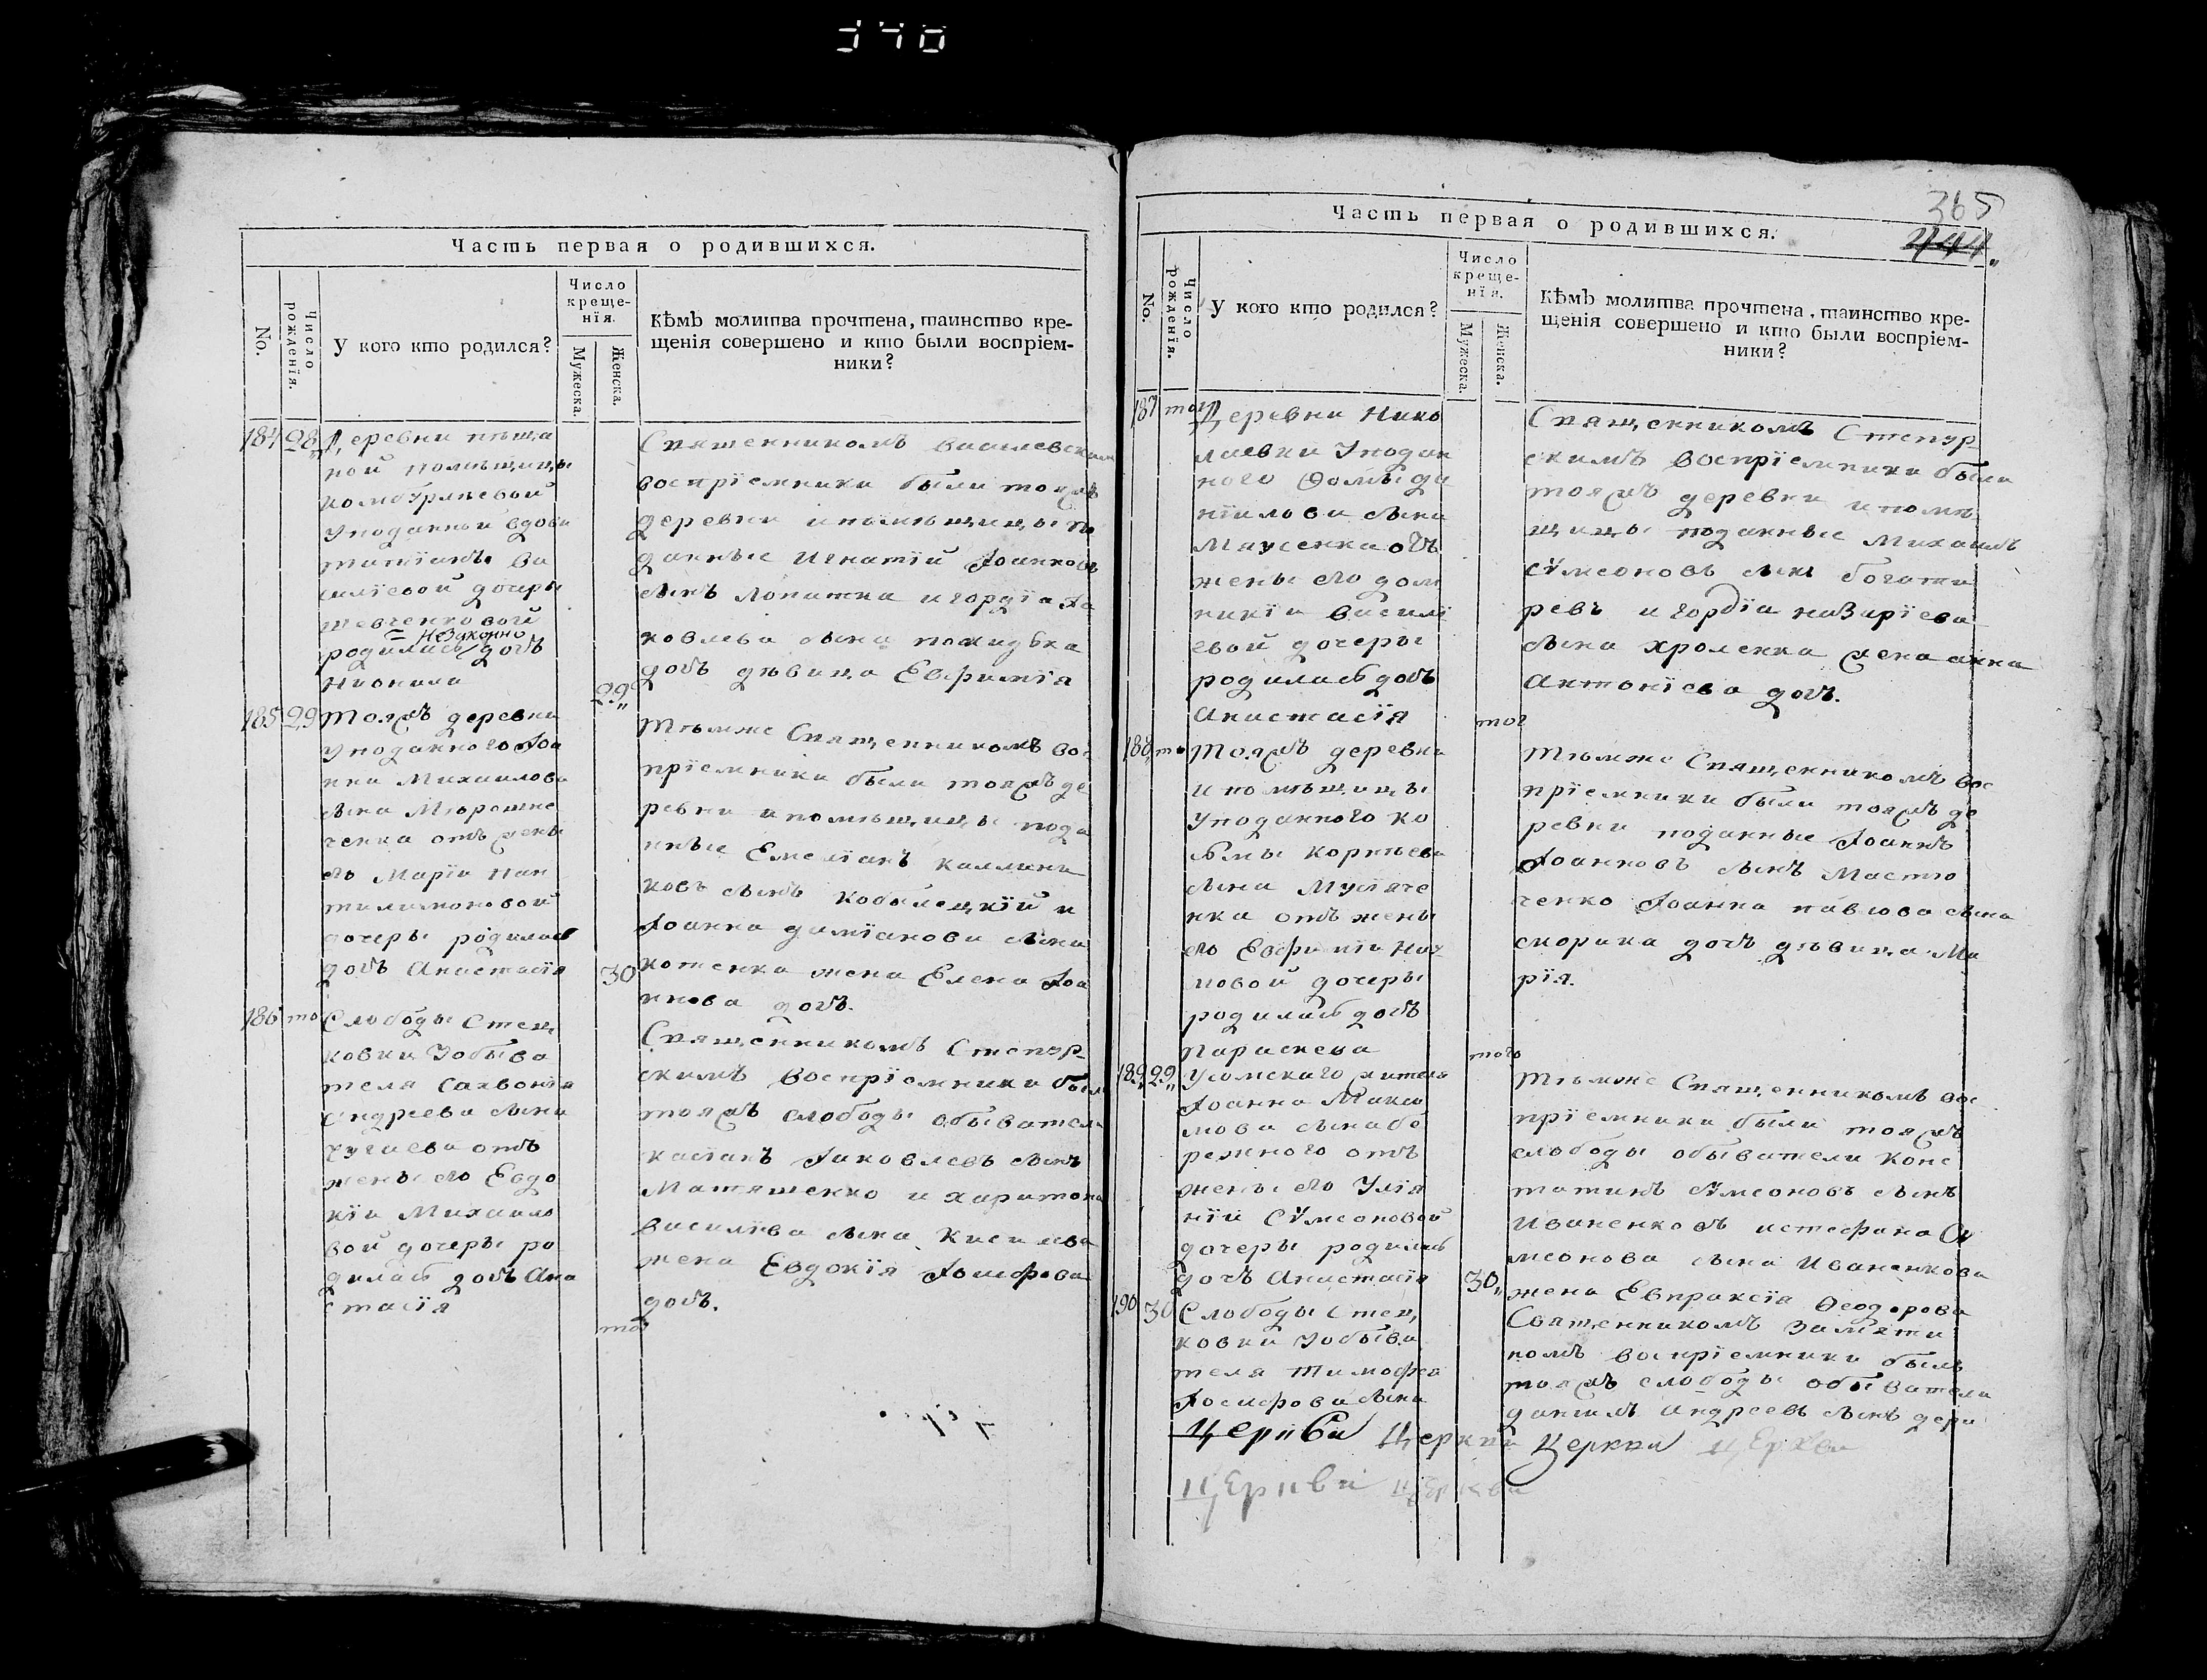 340
Часть первая о родившихся.
No.
Число рожденія.
У кого кто родился?
Число
креще-
нія.
Мужеска.
Женска.
Кѣмъ молитва прочтена, таинство кре-
щенія совершено и кто были воспріем-
ники?
184 28
Деревни пѣща
ной помѣщицы
Уподанной вдовы
татіаны ва
силіевой дочеры
шевченковой
незаконно
родилась дочь
29
Священникомъ василевскимъ
воспріемники были тояжъ
деревни ипомѣщицы по
данные Игнатій Іоанновъ
сынъ Лопатка игордія Іа
ковлева сына
дочь дѣвица Евфимія
185 29
Тояжъ деревни
Уподанного Іоа
нна Михаилова
сына
ченка отъ жены
его Маріи пан
телимоновой
дочеры родилась
дочь Анастасія
30
Тѣмже Священникомъ вос
пріемники были тояжъ де
ревни ипомѣщицы пода
нные Емеліанъ калини
ковъ сынъ кобылецкій и
Іоанна даміанова сына
котенка жена Елена Іоа
ннова дочь.
186 то
Слободы Стец
ковки Уобыва
теля
андреева сына
чугаева отъ
жены его Евдо
кіи Михаило
вой дочеры ро
дилась дочь Ана
стасія
той
Священникомъ Степур
скимъ воспріемники были
тояжъ слободы обыватели
касіанъ Іаковлевъ сынъ
Матяшенко и харитона
василіева сына Киселева
жена Евдокія Іосифова
дочь.
365
444.
Часть первая о родившихся.
No.
Число рожденія.
У кого кто родился?
Число
креще-
нія.
Мужеска.
Женска.
Кѣмъ молитва прочтена, таинство кре-
щенія совершено и кто были воспріем-
ники?
187 тог
Деревни Нико
лаевки Уподан
ного Ѳомы да
ніилова сына
Маусенка отъ
жены его дом
никіи василі
евой дочеры
родилась дочь
Анастасія
тог
Священникомъ Степур
скимъ воспріемники были
тояжъ деревни ипомѣ
щицы поданные Михаилъ
сѵмеоновъ сынъ богати
ревъ игордіа назаріева
сына хроленка жена анна
антоніева дочь.
188 то
Тояжъ деревни
ипомѣщицы
Уподанного ко
сьмы корнѣева
сына
нка отъ жены
его Евфиміи нау
мовой дочеры
родилась дочь
параскева
того
Тѣмже Священникомъ вос
пріемники были тояжъ де
ревни поданные Іоаннъ
Іоанновъ сынъ Мастю
ченко Іоанна павлова сына
скорика дочь дѣвица Ма
рія.
189 29
Усомскаго жителя
Іоанна Макси
мова сына бе
режного отъ
жены его Уліа
ніи сѵмеоновой
дочеры родилась
дочь Анастасія
30
Тѣмже Священникомъ вос
пріемники были тояжъ
слободы обыватели Конс
тантинъ сѵмеоновъ сынъ
Иваненковъ истефана Сѵ
меонова сына Иваненкова
жена Евпраксія Ѳеодорова
190 30
Слободы Стец
ковки Уобыва
теля Тимофея
Іосифова сына
Священникомъ Замяти
номъ воспріемники были
тояжъ слободы обыватели
даніилъ андреевъ сынъ дери
Церкви Церкви Церкви Церкви
Церкви Церкви